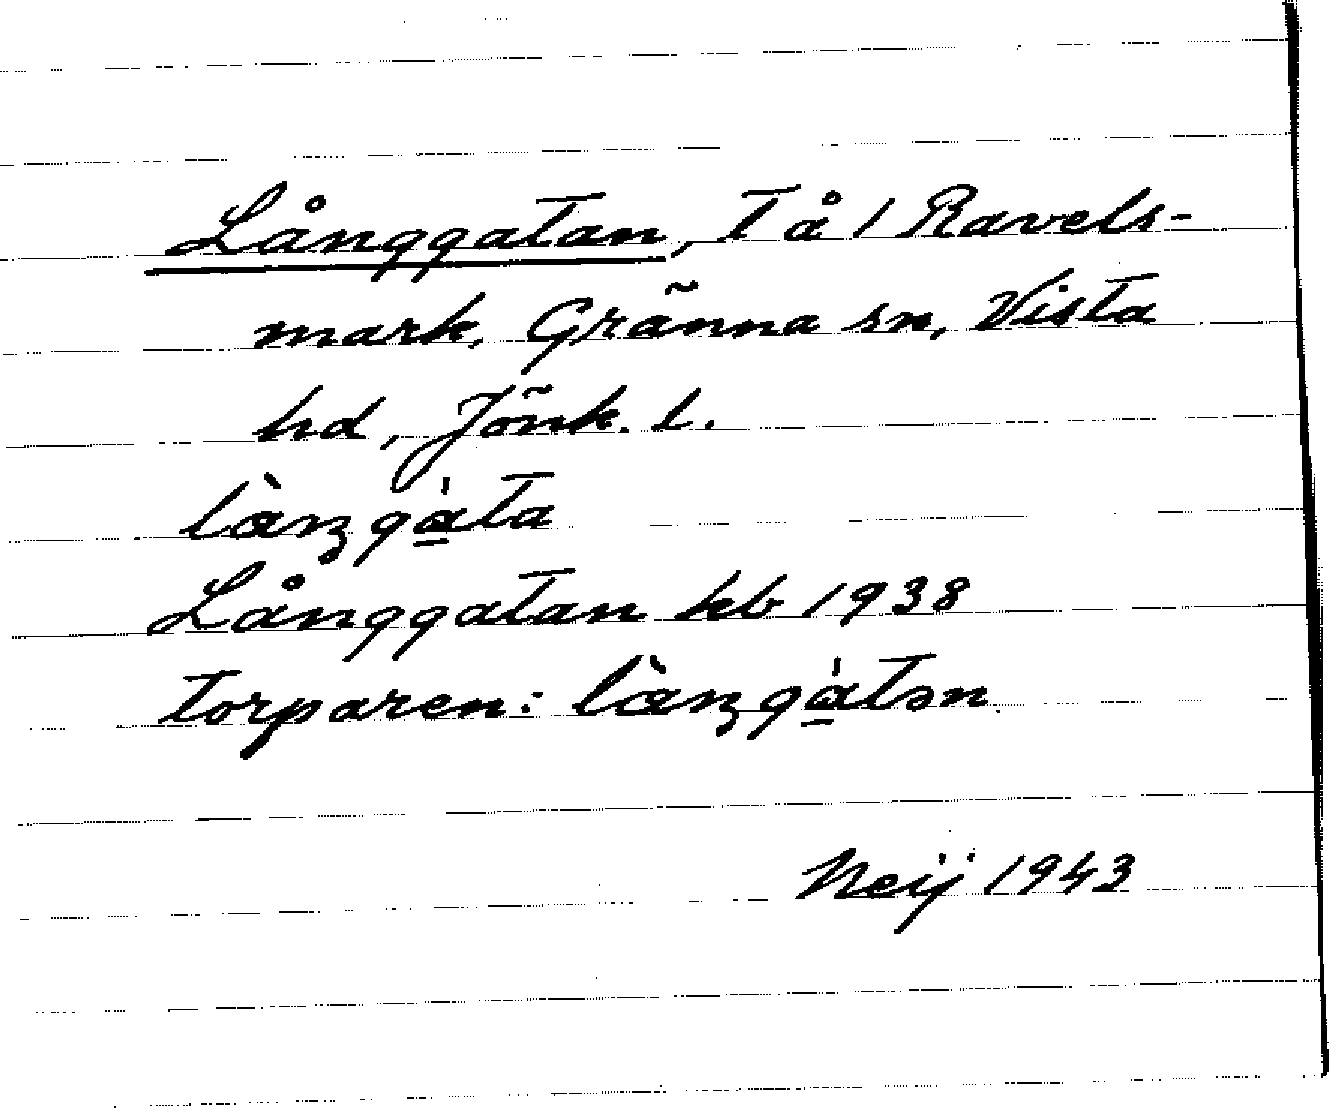 Långgatan, T å 1 Ravels-
mark, Gränna sn, Vista
hd, Jönk. l.
lànŋgàta
Långgatan kb 1938
torparen: lànŋgàtən
Neij 1943